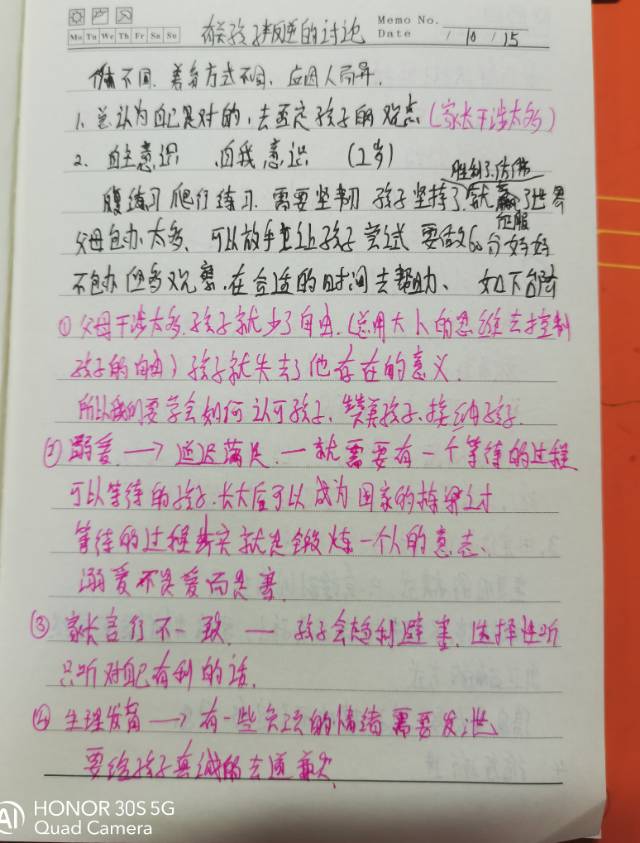 Memo No.
Mo Tu We Th Fr Sa Su
Date / 10 / 15
有关孩子叛逆的讨论
体不同、养育方式不同、应因人而异.
1. 总认为自己是对的,去否定孩子的观点(家长干涉太多)
2. 自主意识 自我意识 (2岁)
胜利了
腹练习爬行练习.需要坚韧 孩子坚持了就赢了世界
征服
父母包办太多、可以放手让孩子尝试 要做60分妈妈
不包办但多观察、在合适的时间去帮助、如下台阶
① 父母干涉太多.孩子就少了自由.(总用大人的思维去控制
孩子的自由)孩子就失去了他存在的意义.
所以我们要学会如何认可孩子、赞美孩子、接纳孩子.
② 溺爱 → 延迟满足.一就需要有一个等待的过程
可以等待的孩子.长大后可以成为国家的栋梁之材
等待的过程其实就是锻炼一个人的意志、
溺爱不是爱而是害.
③ 家长言行不一致.— 孩子会趋利避害.选择性听
只听对自己有利的话.
④ 生理发育 → 有一些负面的情绪需要发泄
要给孩子真诚的去道歉
AI HONOR 30S 5G
Quad Camera